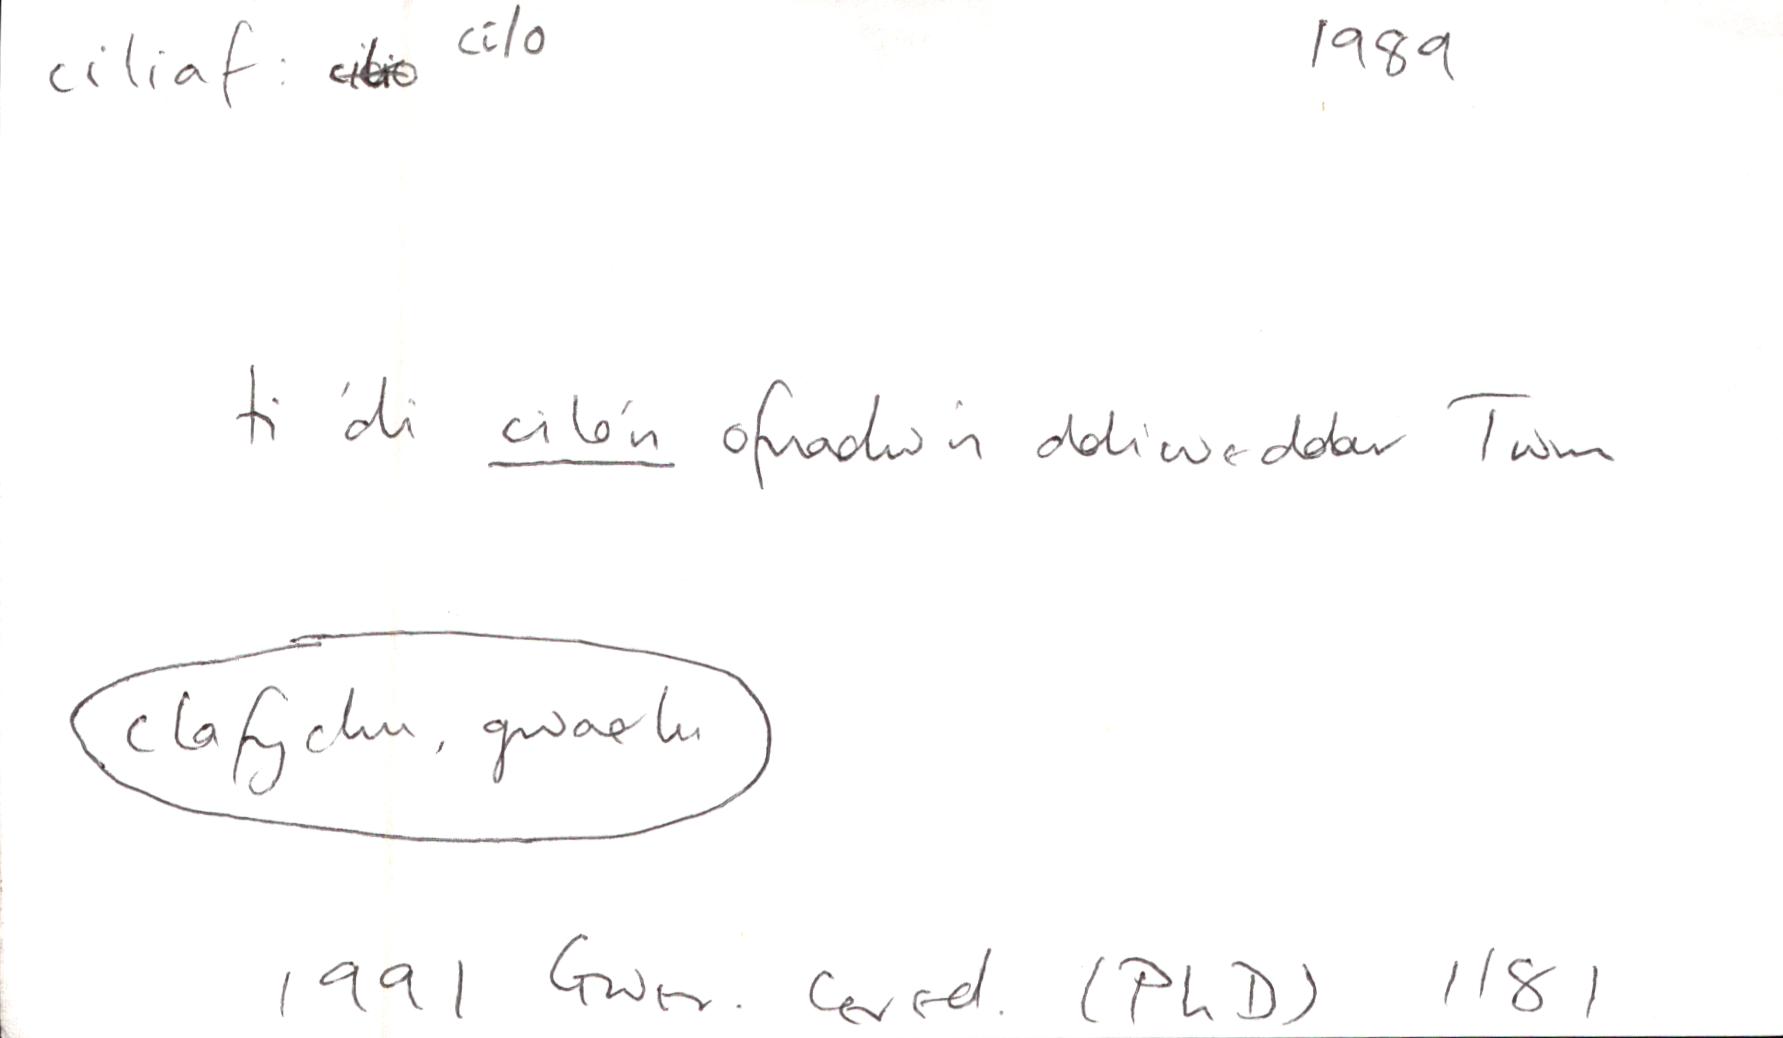 ciliaf: cilio cilo 1989
ti 'di cilo'n ofnadw'n ddiweddar Twm
clafychu, gwaelu
1991 Gwer. Cered. (PhD) 1181